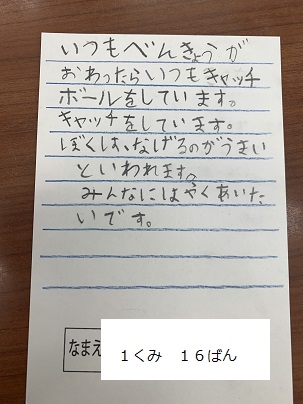 いつもべんきょうが
おわったらいつもキャッチ
ボールをしています。
キャッチをしています。
ぼくは、なげるのがうまい
といわれます。
みんなにはやくあいた
いです。
なまえ
1くみ　16ばん